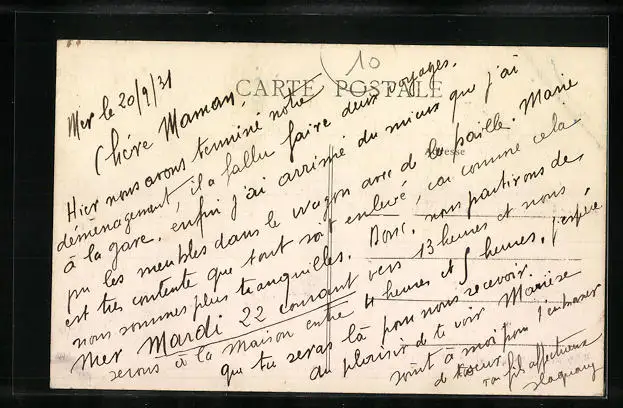 10
CARTE POSTALE
Adresse
Mer le 20/9/31
Chère Maman,
Hier nous avons terminé notre
déménagement, il a fallu faire deux voyages.
à la gare, enfin j'ai arrimé du mieux que j'ai
pu les meubles dans le wagon avec de la paille. Marie
est très contente que tout soit enlevé, car comme cela
nous sommes plus tranquilles. Donc, nous partirons de
Mer Mardi 22 courant vers 13 heures et nous
serons à la maison entre 4 heures et 5 heures, j'espère
que tu seras là pour nous recevoir.
au plaisir de te voir
joint à moi pour t'embrasser
de cœur
ton fils affectueux